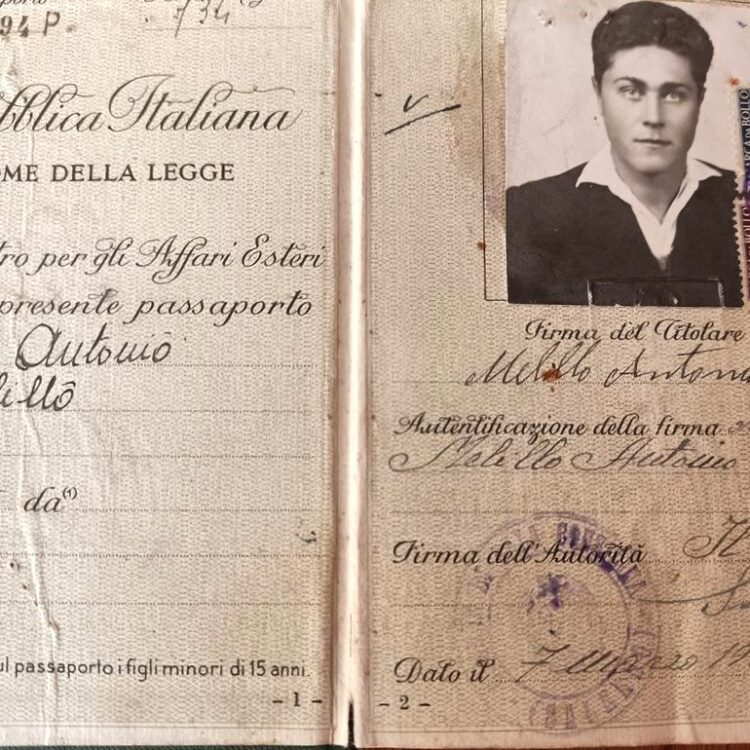 94 P.
734
bblica Italiana
OME DELLA LEGGE
tro per gli Affari Esteri
presente passaporto
Antonio
da(1)
ul passaporto i figli minori di 15 anni.
- 1 -
Firma del Titolare
Melillo Anton
Autentificazione della firma
Melillo Antonio
Firma dell'Autorità
Dato il 7 marzo 19
- 2 -